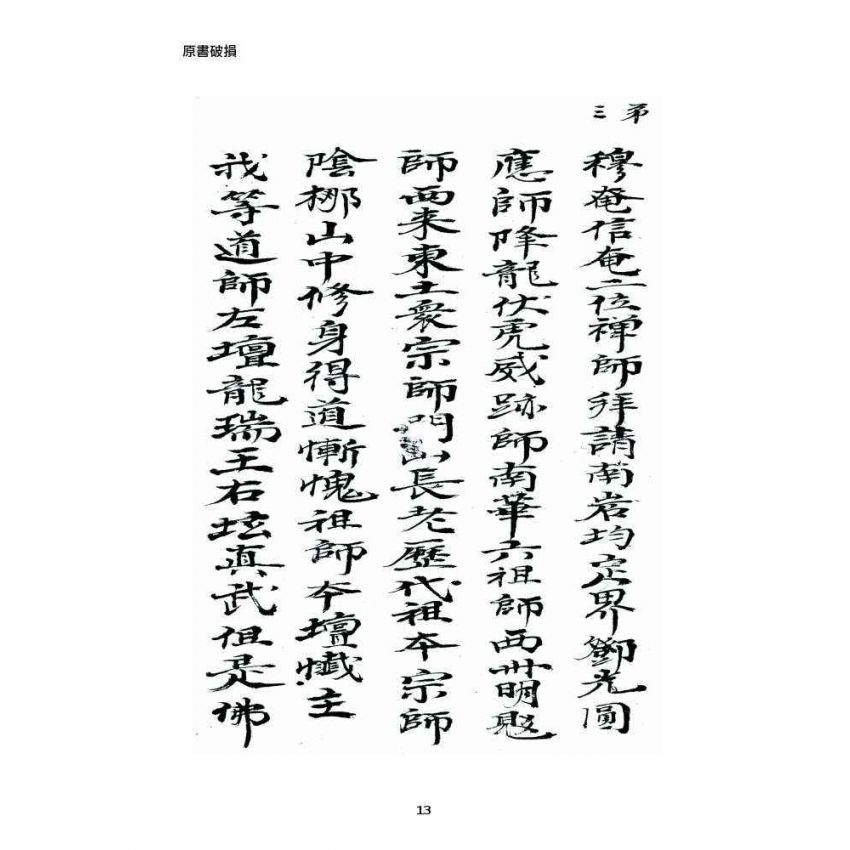 原書破損
弟三
穆奄信奄二位禅師拜請南岩均定界鄧光圓
應師降龍伏虎威跡師南華六祖師西卅明
師西来東土衆宗師門長老歷代祖夲宗師
陰梛山中修身得道慚愧祖師夲壇懺主
我等道師左壇龍瑞王右坛真武但是佛
13